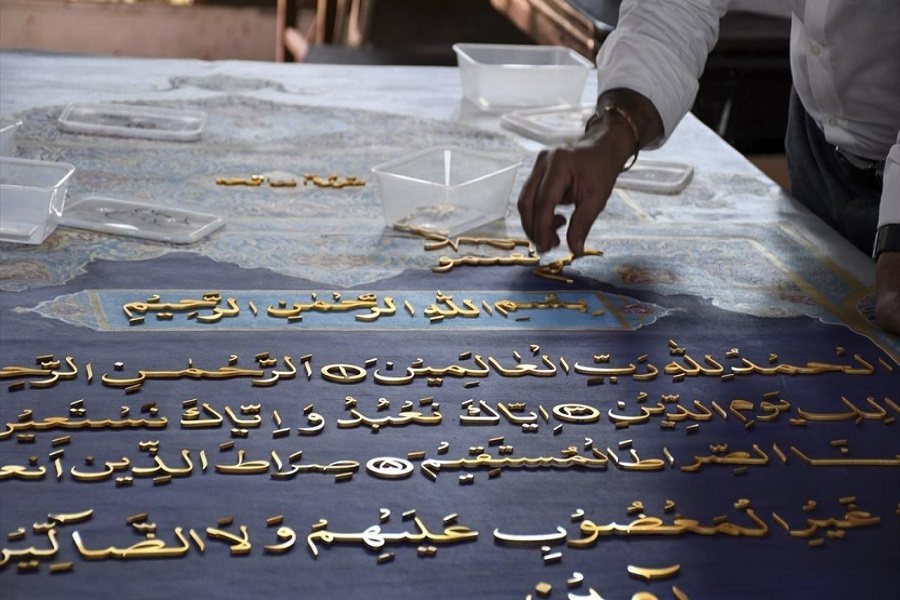 بِسْمِ اللَّهِ الرَّحْمَٰنِ الرَّحِيمِ
الْحَمْدُ لِلَّهِ رَبِّ الْعَالَمِينَ ۝١ الرَّحْمَٰنِ الرَّحِ
مَالِكِ يَوْمِ الدِّينِ ۝٣ إِيَّاكَ نَعْبُدُ وَإِيَّاكَ نَسْتَعِينُ
نَا الصِّرَاطَ الْمُسْتَقِيمَ ۝٥ صِرَاطَ الَّذِينَ أَنْعَمْ
غَيْرِ الْمَغْضُوبِ عَلَيْهِمْ وَلَا الضَّالِّينَ